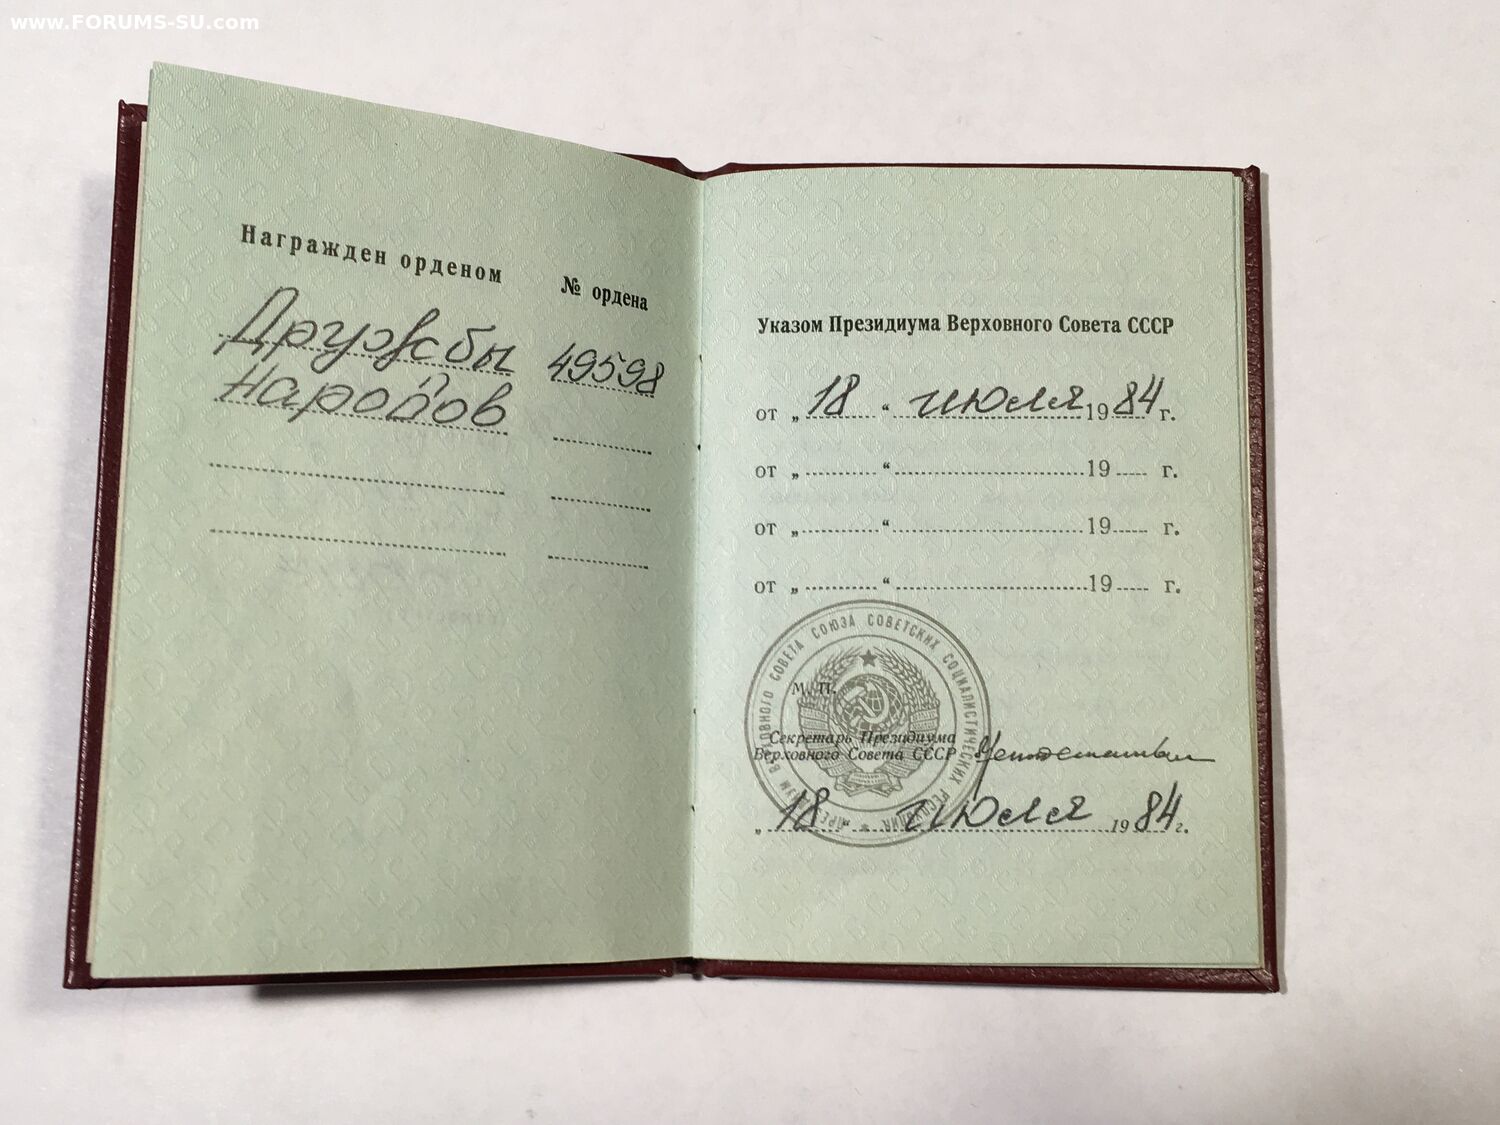 www.FORUMS-SU.com
Награжден орденом
№ ордена
Дружбы 49598
Народов
Указом Президиума Верховного Совета СССР
от „ 18 “ июля 1984 г.
от „ “ 19 г.
от „ “ 19 г.
от „ “ 19 г.
ПРЕЗИДИУМ ВЕРХОВНОГО СОВЕТА СОЮЗА СОВЕТСКИХ СОЦИАЛИСТИЧЕСКИХ РЕСПУБЛИК
М. П.
Секретарь Президиума
Верховного Совета СССР
„ 18 “ июля 1984 г.